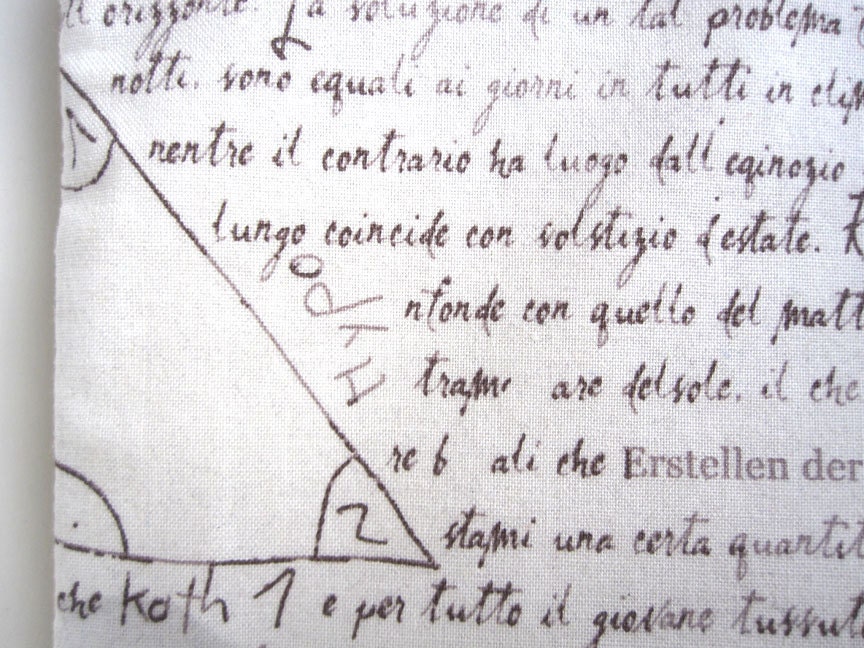 orizzonte. La soluzione di un tal problema
notti. sono equali ai giorni in tutti in
1
nentre il contrario ha luogo dall eqinozio
lungo coincide con solstizio d'estate.
HYPO
ntonde con quello del matt
trame are del sole. il che
re b ali che Erstellen der
2
stami una certa quantit
che Kath 1 e per tutto il giovane tussut